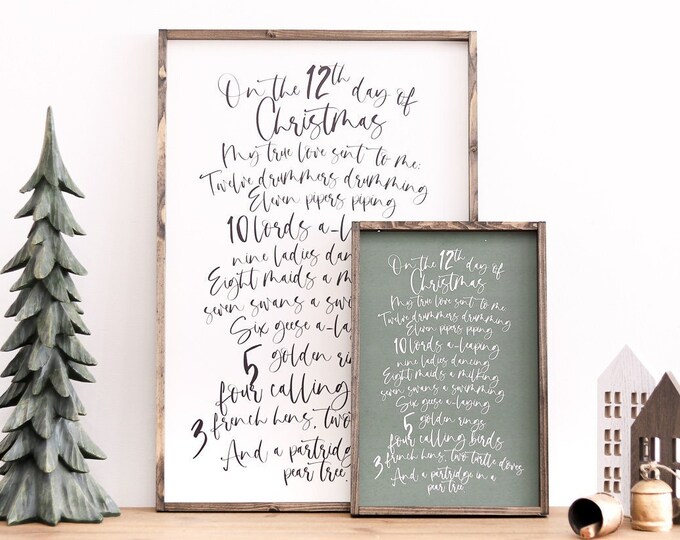 On the 12th day of
Christmas
My true love sent to me:
Twelve drummers drumming
Eleven pipers piping
10 lords a-leap
nine ladies danc
Eight maids a m
seven swans a sw
Six geese a-lay
5 golden rin
four calling
3 french hens, two
And a partridg
pear tree.
On the 12th day of
Christmas
My true love sent to me
Twelve drummers drumming
Eleven pipers piping
10 lords a-leaping
nine ladies dancing
Eight maids a milking
seven swans a swimming
Six geese a-laying
5 golden rings
four calling birds
3 french hens, two turtle doves
And a partridge in a
pear tree